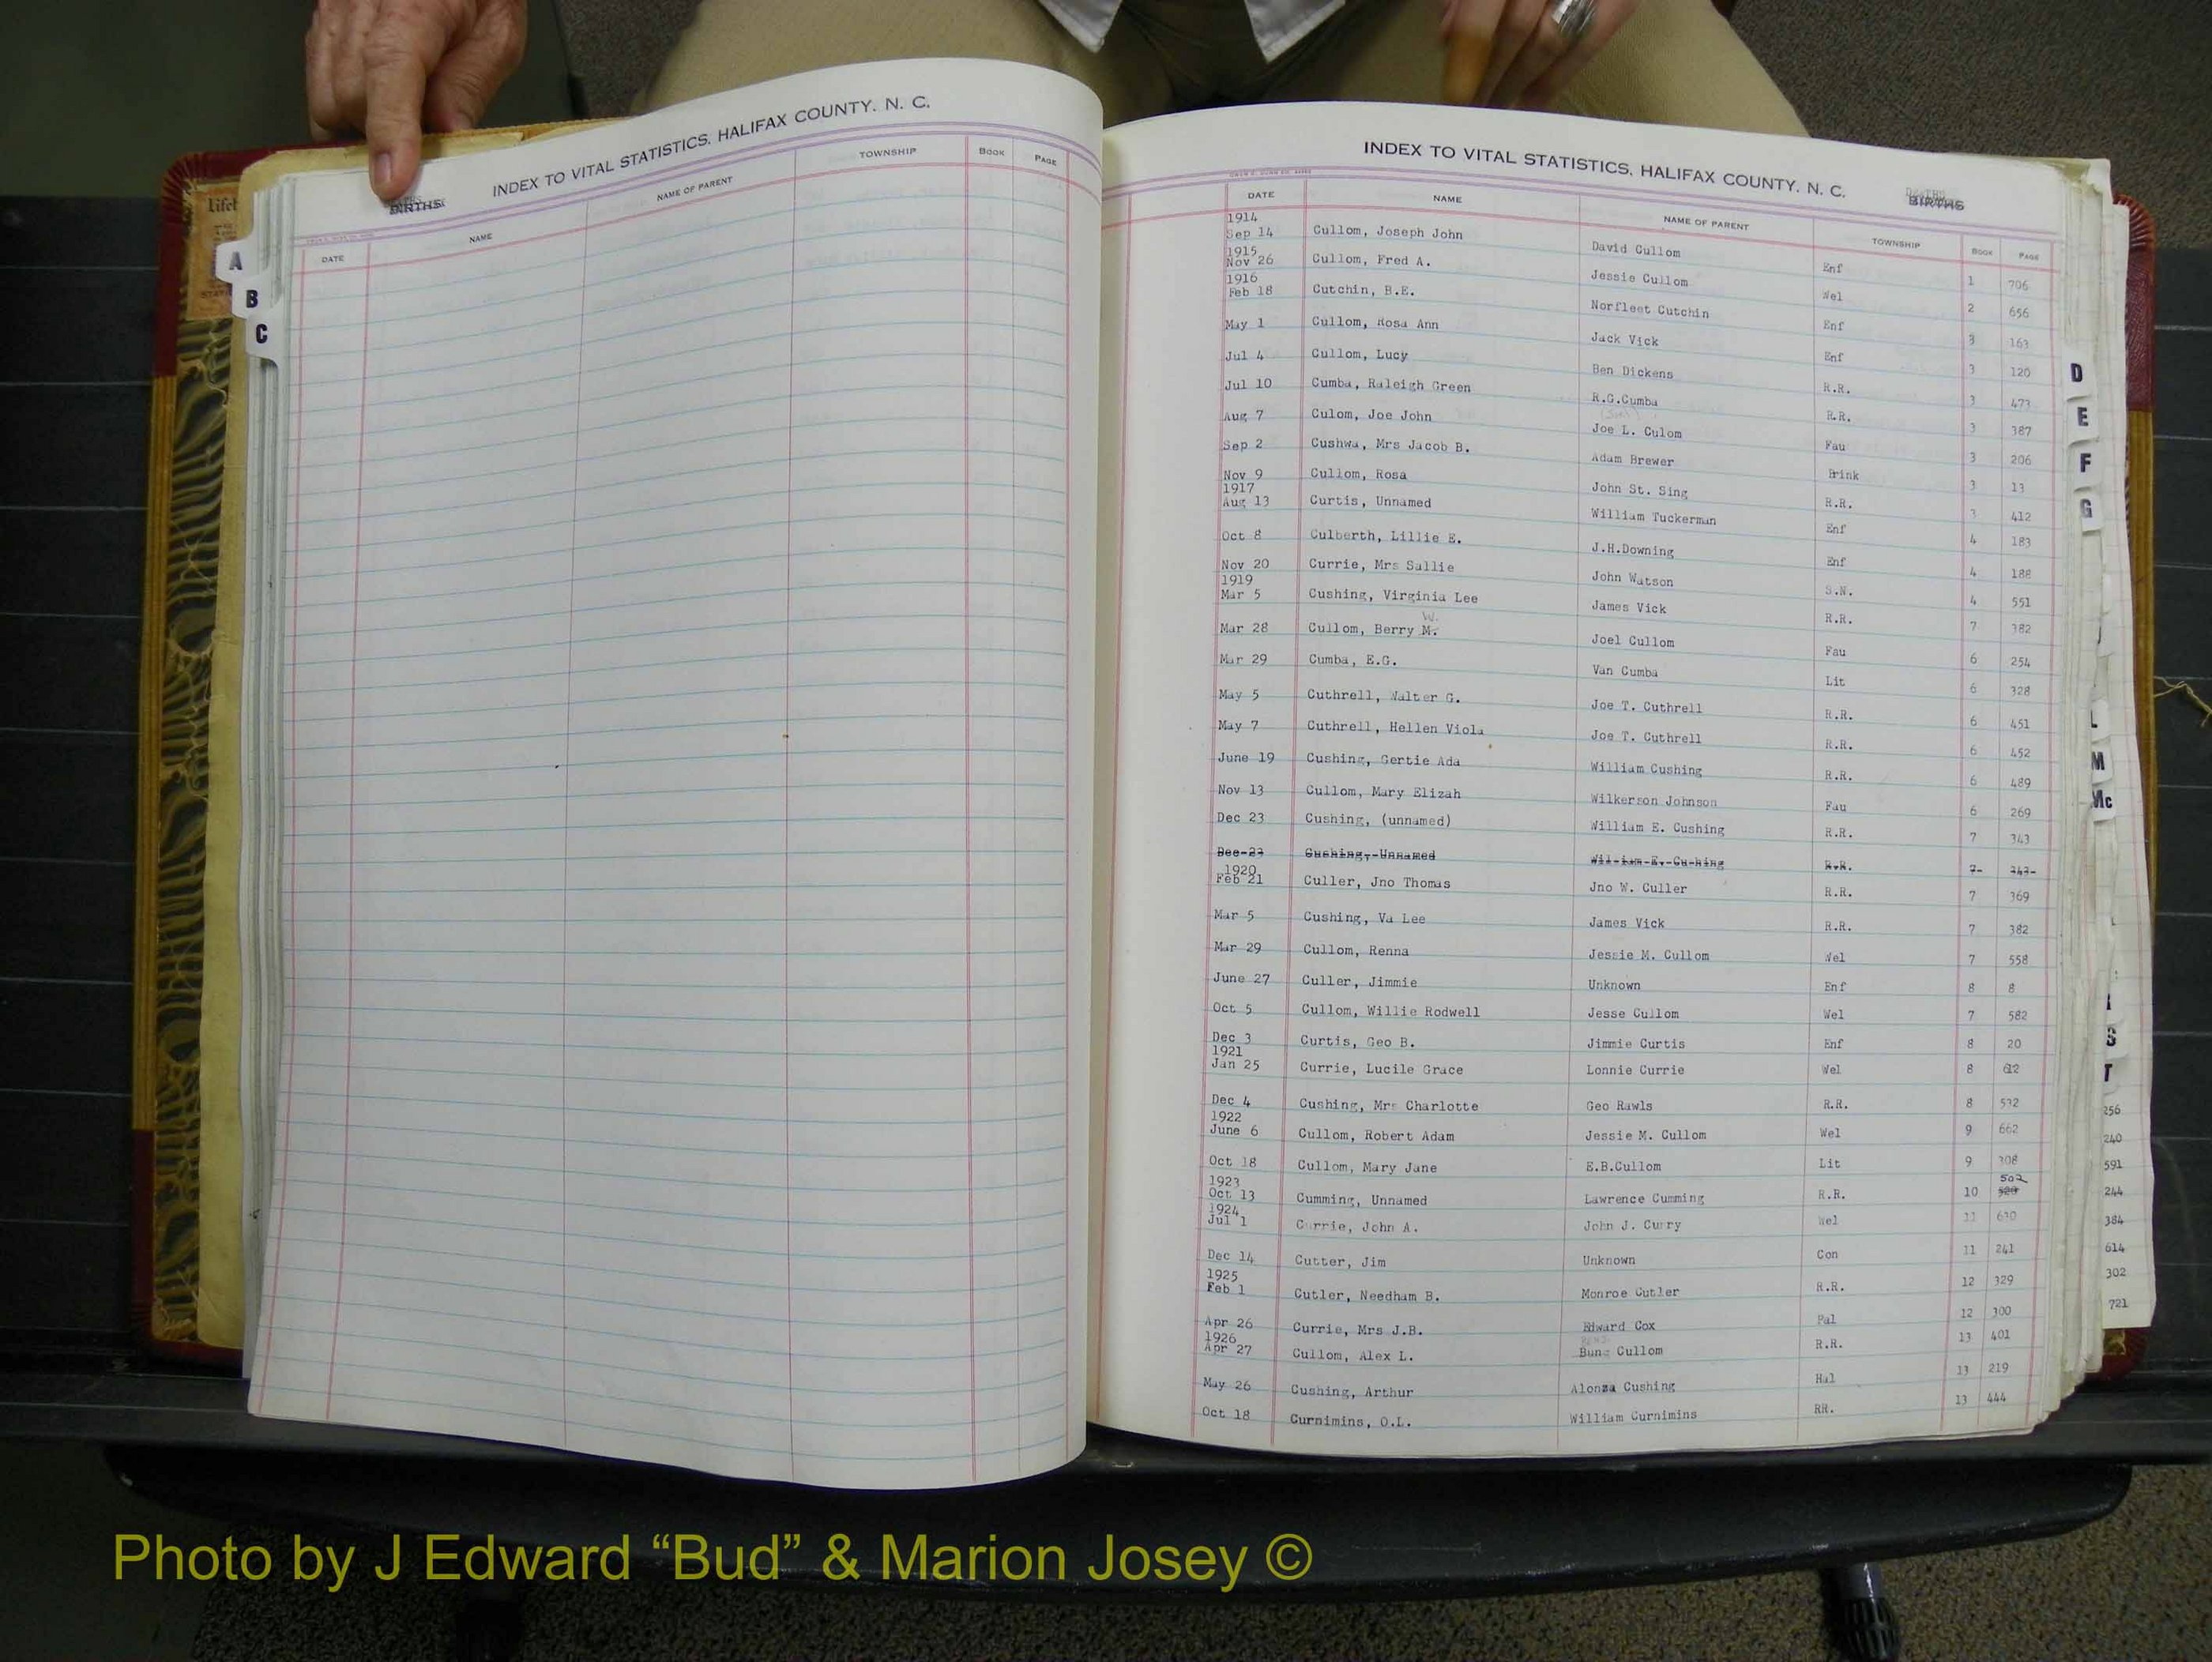 INDEX TO VITAL STATISTICS, HALIFAX COUNTY, N. C.
BIRTHS
DATE NAME NAME OF PARENT TOWNSHIP BOOK PAGE
A
B
C
INDEX TO VITAL STATISTICS, HALIFAX COUNTY, N. C.
DEATHS
BIRTHS
DATE NAME NAME OF PARENT TOWNSHIP BOOK PAGE
1914
Sep 14 Cullom, Joseph John David Cullom Enf 1 706
1915
Nov 26 Cullom, Fred A. Jessie Cullom Wel 2 656
1916
Feb 18 Cutchin, B.E. Norfleet Cutchin Enf 3 163
May 1 Cullom, Rosa Ann Jack Vick Enf 3 120
Jul 4 Cullom, Lucy Ben Dickens R.R. 3 473
Jul 10 Cumba, Raleigh Green R.G.Cumba R.R. 3 387
Aug 7 Culom, Joe John Joe L. Culom Fau 3 206
Sep 2 Cushwa, Mrs Jacob B. Adam Brewer Brink 3 13
Nov 9 Cullom, Rosa John St. Sing R.R. 3 412
1917
Aug 13 Curtis, Unnamed William Tuckerman Enf 4 183
Oct 8 Culberth, Lillie E. J.H.Downing Enf 4 188
Nov 20 Currie, Mrs Sallie John Watson S.N. 4 551
1919
Mar 5 Cushing, Virginia Lee James Vick R.R. 7 382
W.
Mar 28 Cullom, Berry M. Joel Cullom Fau 6 254
Mar 29 Cumba, E.G. Van Cumba Lit 6 328
May 5 Cuthrell, Walter G. Joe T. Cuthrell R.R. 6 451
May 7 Cuthrell, Hellen Viola Joe T. Cuthrell R.R. 6 452
June 19 Cushing, Gertie Ada William Cushing R.R. 6 489
Nov 13 Cullom, Mary Elizah Wilkerson Johnson Fau 6 269
Dec 23 Cushing, (unnamed) William E. Cushing R.R. 7 343
Dec 23 Cushing, Unnamed William E. Cushing R.R. 7 343
1920
Feb 21 Culler, Jno Thomas Jno W. Culler R.R. 7 369
Mar 5 Cushing, Va Lee James Vick R.R. 7 382
Mar 29 Cullom, Renna Jessie M. Cullom Wel 7 558
June 27 Culler, Jimmie Unknown Enf 8 8
Oct 5 Cullom, Willie Rodwell Jesse Cullom Wel 7 582
Dec 3 Curtis, Geo B. Jimmie Curtis Enf 8 20
1921
Jan 25 Currie, Lucile Grace Lonnie Currie Wel 8 612
Dec 4 Cushing, Mrs Charlotte Geo Rawls R.R. 8 532
1922
June 6 Cullom, Robert Adam Jessie M. Cullom Wel 9 662
Oct 18 Cullom, Mary Jane E.B.Cullom Lit 9 308
1923 502
Oct 13 Cumming, Unnamed Lawrence Cumming R.R. 10 520
1924
Jul 1 Currie, John A. John J. Curry Wel 11 630
Dec 14 Cutter, Jim Unknown Con 11 241
1925
Feb 1 Cutler, Needham B. Monroe Cutler R.R. 12 329
Apr 26 Currie, Mrs J.B. Edward Cox Pal 12 300
1926
Apr 27 Cullom, Alex L. Bung Cullom R.R. 13 401
May 26 Cushing, Arthur Alonza Cushing Hal 13 219
Oct 18 Curnimins, O.L. William Curnimins RR. 13 444
D
E
F
G
L
M
Mc
S
T
256
240
591
244
384
614
302
721
Photo by J Edward “Bud” & Marion Josey ©